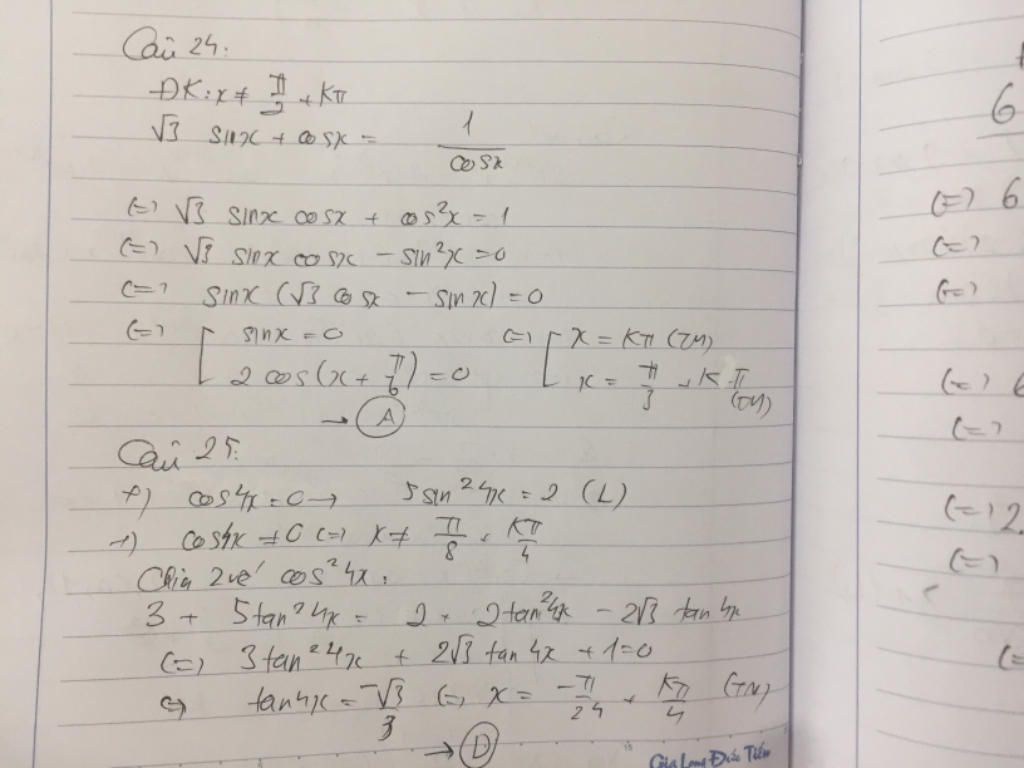 Câu 24:
ĐK: x ≠ π/2 + kπ
√3 sinx + cosx = 1/cosx
(=) √3 sinx cosx + cos²x = 1
(=) √3 sinx cosx − sin²x = 0
(=) sinx (√3 cosx − sinx) = 0
(=) [ sinx = 0 (=) [ x = kπ (TM)
2 cos(x + π/6) = 0 x = π/3 + kπ (TM)
→ A
Câu 25:
+) cos4x = 0 → 5sin²4x = 2 (L)
+) cos4x ≠ 0 (=) x ≠ π/8 + kπ/4
Chia 2 vế cos²4x:
3 + 5tan²4x = 2 + 2tan²4x − 2√3 tan4x
(=) 3tan²4x + 2√3 tan4x + 1 = 0
(=) tan4x = −√3/3 (=) x = −π/24 + kπ/4 (TM)
→ D
Gia Long Đức Tiến
6
(=) 6
(=)
(=)
(=) 6
(=)
(=) 2
(=)
(=